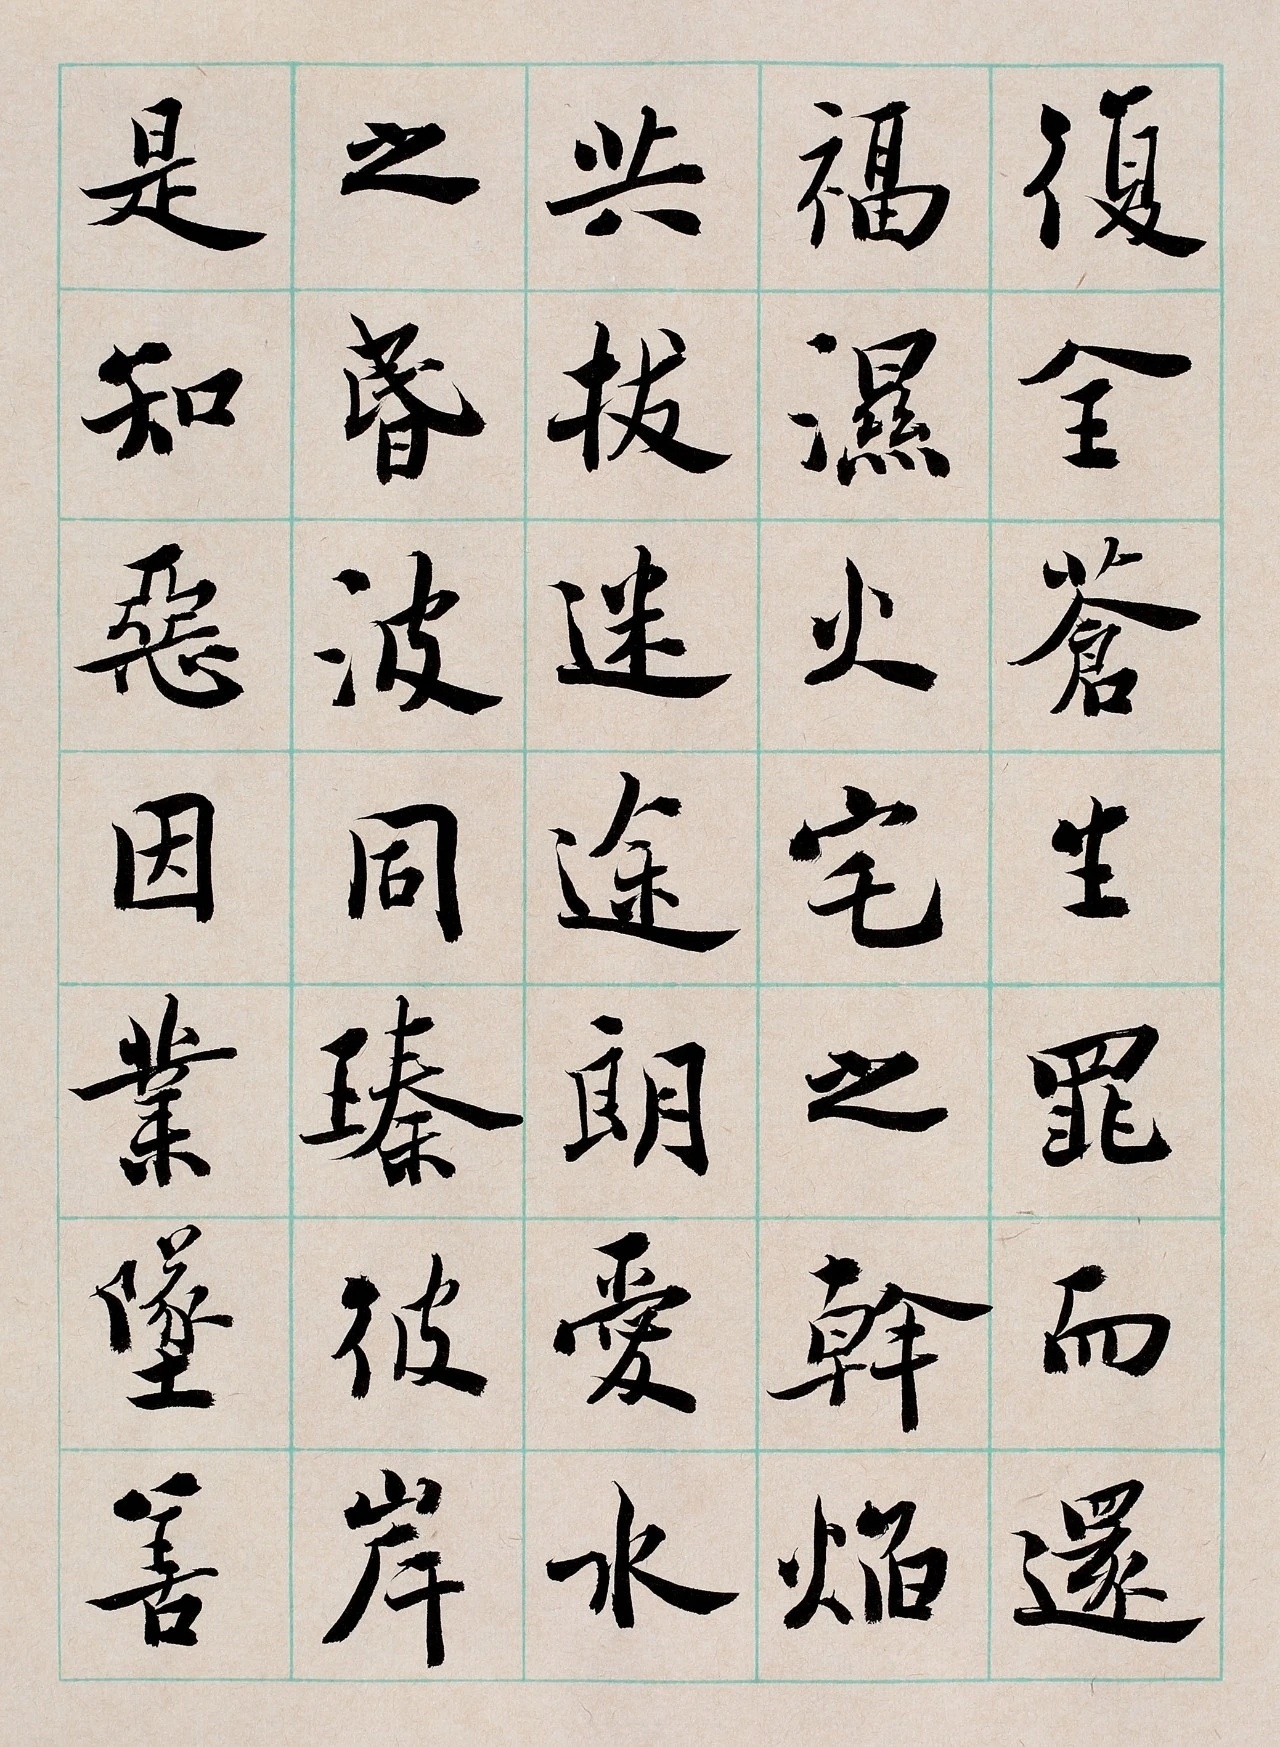 復全蒼生罪而還
福濕火宅之幹焰
共拔迷途朗愛水
之昬波同臻彼岸
是知惡因業墜善